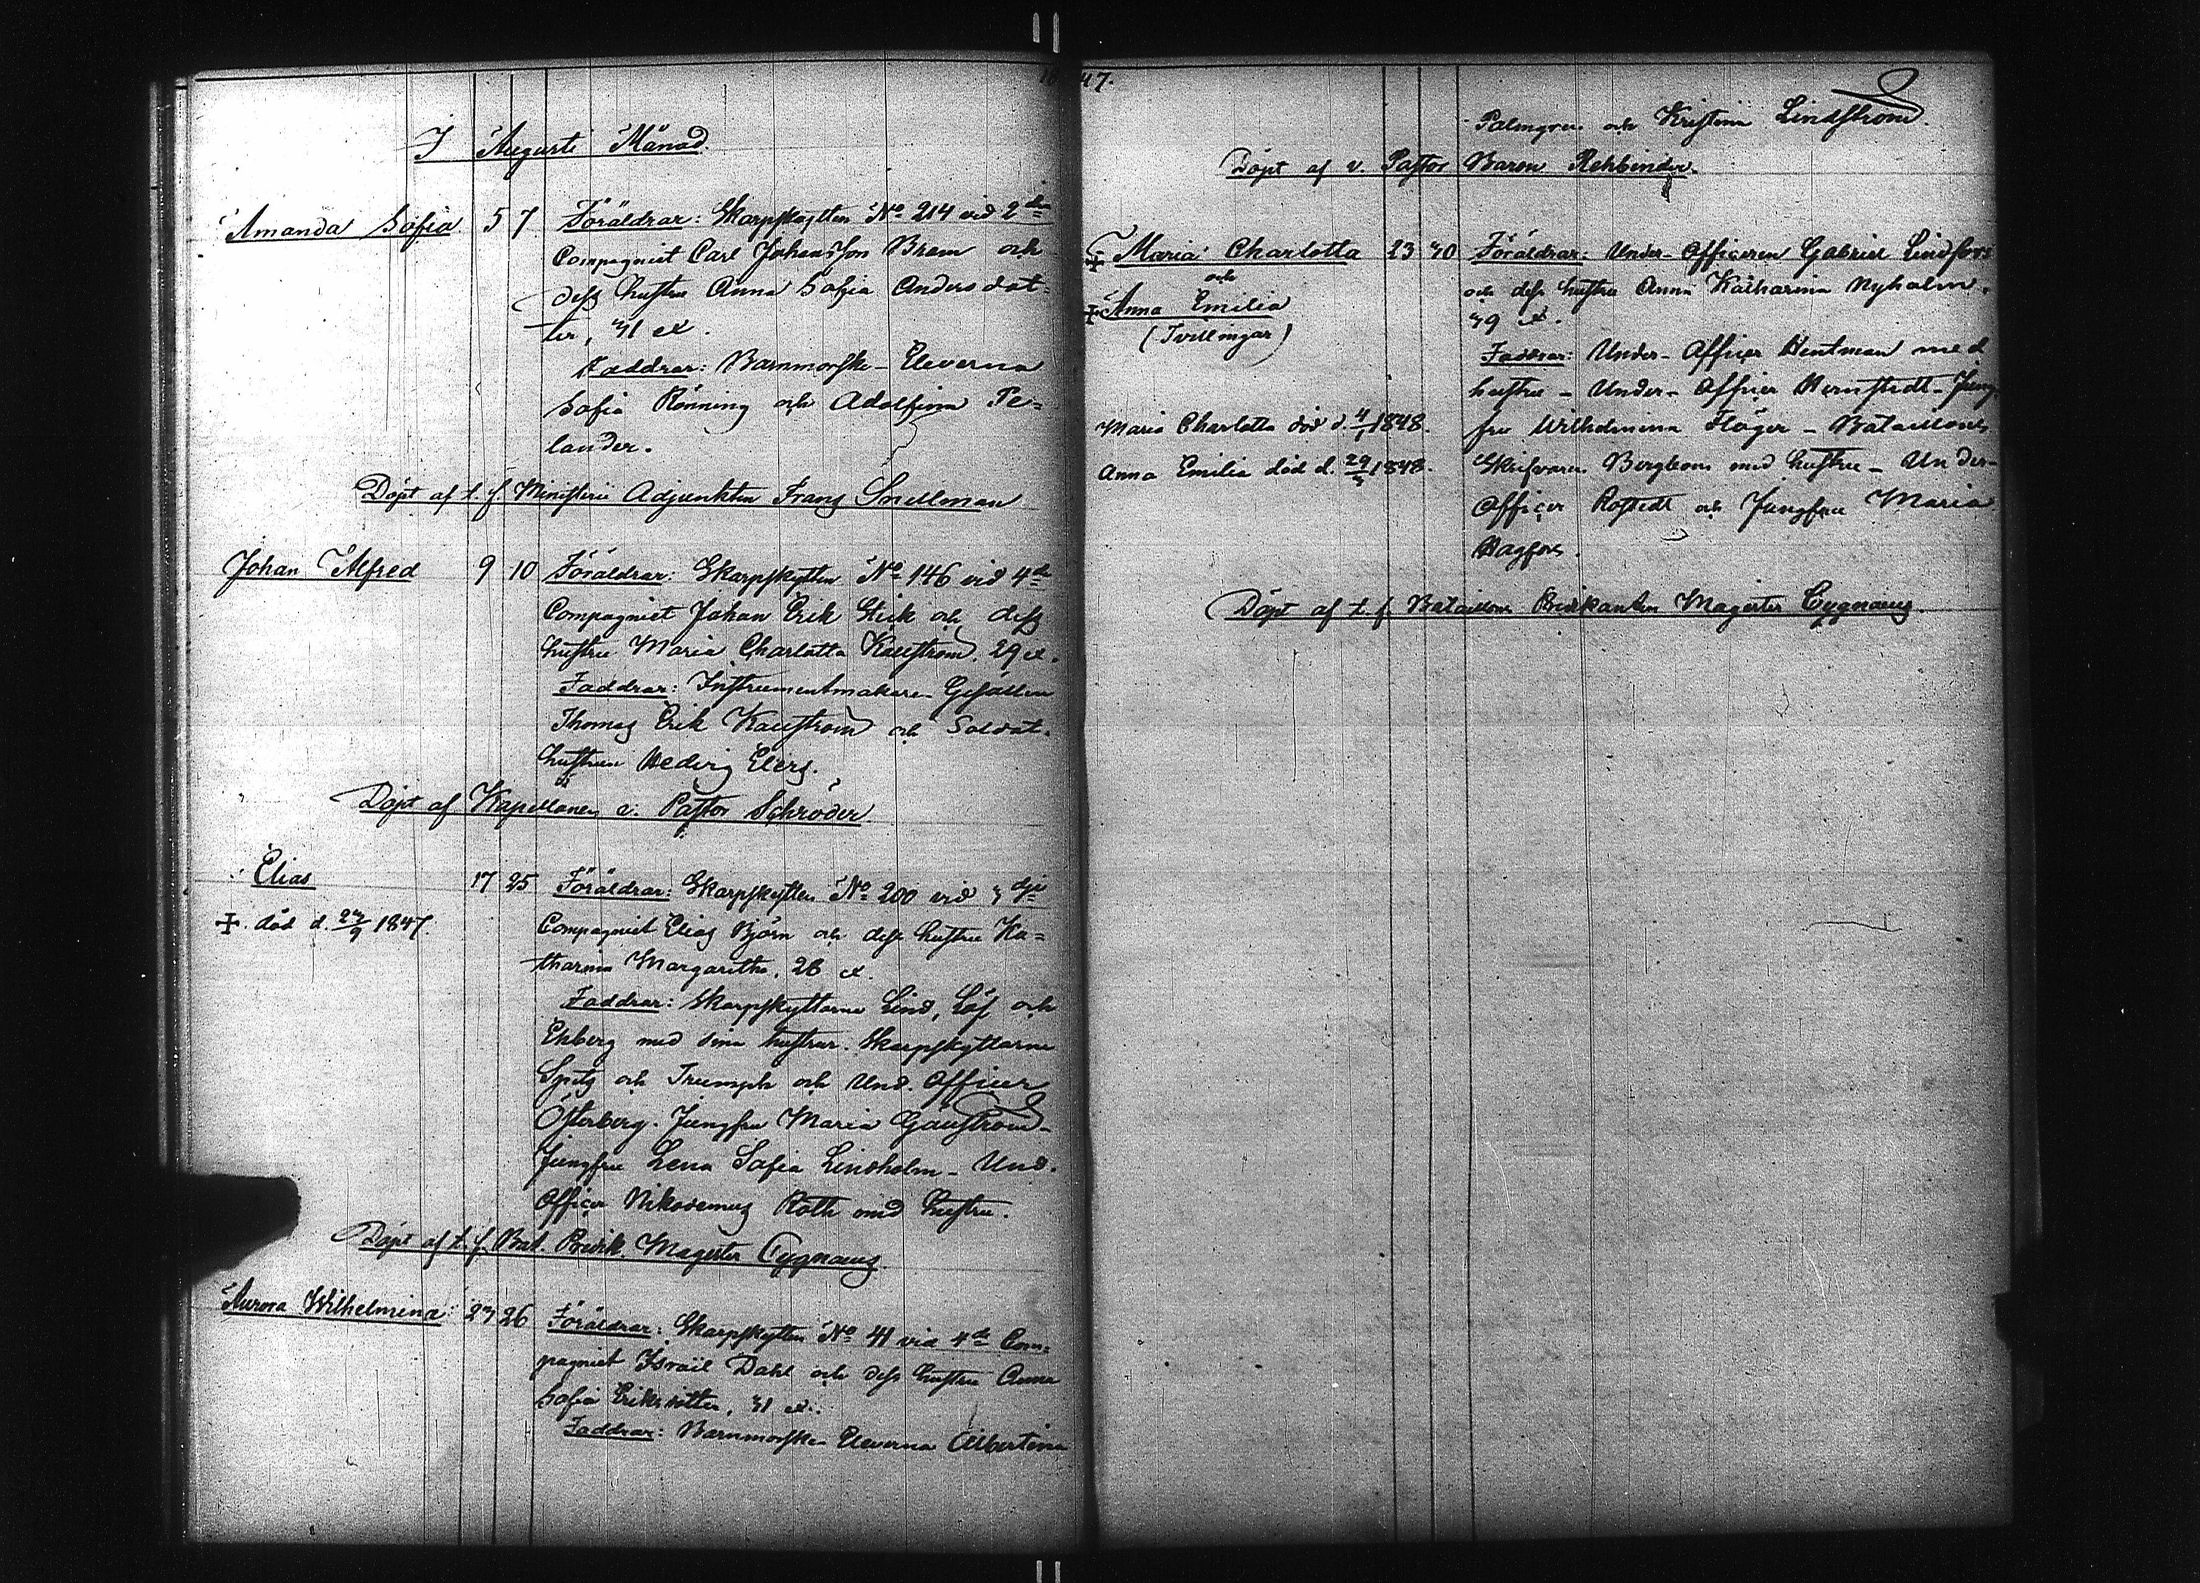 1847.
I Augusti Månad.
Amanda Sofia 5 7 Föräldrar: Skarpskytten No 214 vid 2dra
Compagniet Carl Johansson Bram och
dess hustru Anna Sofia Andersdot-
ter, 31 år.
Faddrar: Barnmorske-Eleverna
Sofia Rönning och Adolfina Pe-
lander.
Döpt af t. f. Ministerii Adjunkten Frans Snellman
Johan Alfred 9 10 Föräldrar: Skarpskytten No 146 vid 4de
Compagniet Johan Erik Stick och dess
hustru Maria Charlotta Kallström, 29 år.
Faddrar: Instrumentmakare-Gesällen
Thomas Erik Kallström och Soldat-
hustrun Hedvig Elers.
Döpt af Kapellanen v. Pastor Schröder.
Elias 17 25 Föräldrar: Skarpskytten No 200 vid 3dje
+ död d. 23/9 1847.
Compagniet Elias Björn och dess hustru Ka-
tharina Margaretha, 26 år.
Faddrar: Skarpskyttarne Lind, Löf och
Ekberg med sina hustrur. Skarpskyttarne
Spitz och Triumph och Und. Officer
Österberg. Jungfru Maria Gäuström -
Jungfru Lena Sofia Lindholm - Und.
Officer Nikodemus Roth med hustru.
Döpt af t. f. Bat. Predik. Magister Cygnaeus
Aurora Wilhelmina 23 26 Föräldrar: Skarpskytten No 41 vid 4de Com-
pagniet Israil Dahl och dess hustru Anna
Sofia Eriksdotter, 31 år.
Faddrar: Barnmorske Eleverna Albertina
Palmgren och Kristina Lindström.
Döpt af v. Pastor Baron Rehbinder.
+ Maria Charlotta 23 30 Föräldrar: Under-Officeren Gabriel Lindfors
och
och dess hustru Anna Katharina Nyholm,
+ Anna Emilia
39 år.
(Tvillingar)
Faddrar: Under-Officer Hentman med
hustru - Under-Officer Hernstedt - Jung-
Maria Charlotta död d. 4/1 1848.
fru Wilhelmina Höger - Bataillons
Anna Emilia död d. 29/3 1848.
Skrifvaren Bergbom med hustru - Under-
Officer Rostedt och Jungfru Maria
Hagfors.
Döpt af t. f. Bataillons Predikanten Magister Cygnaeus.